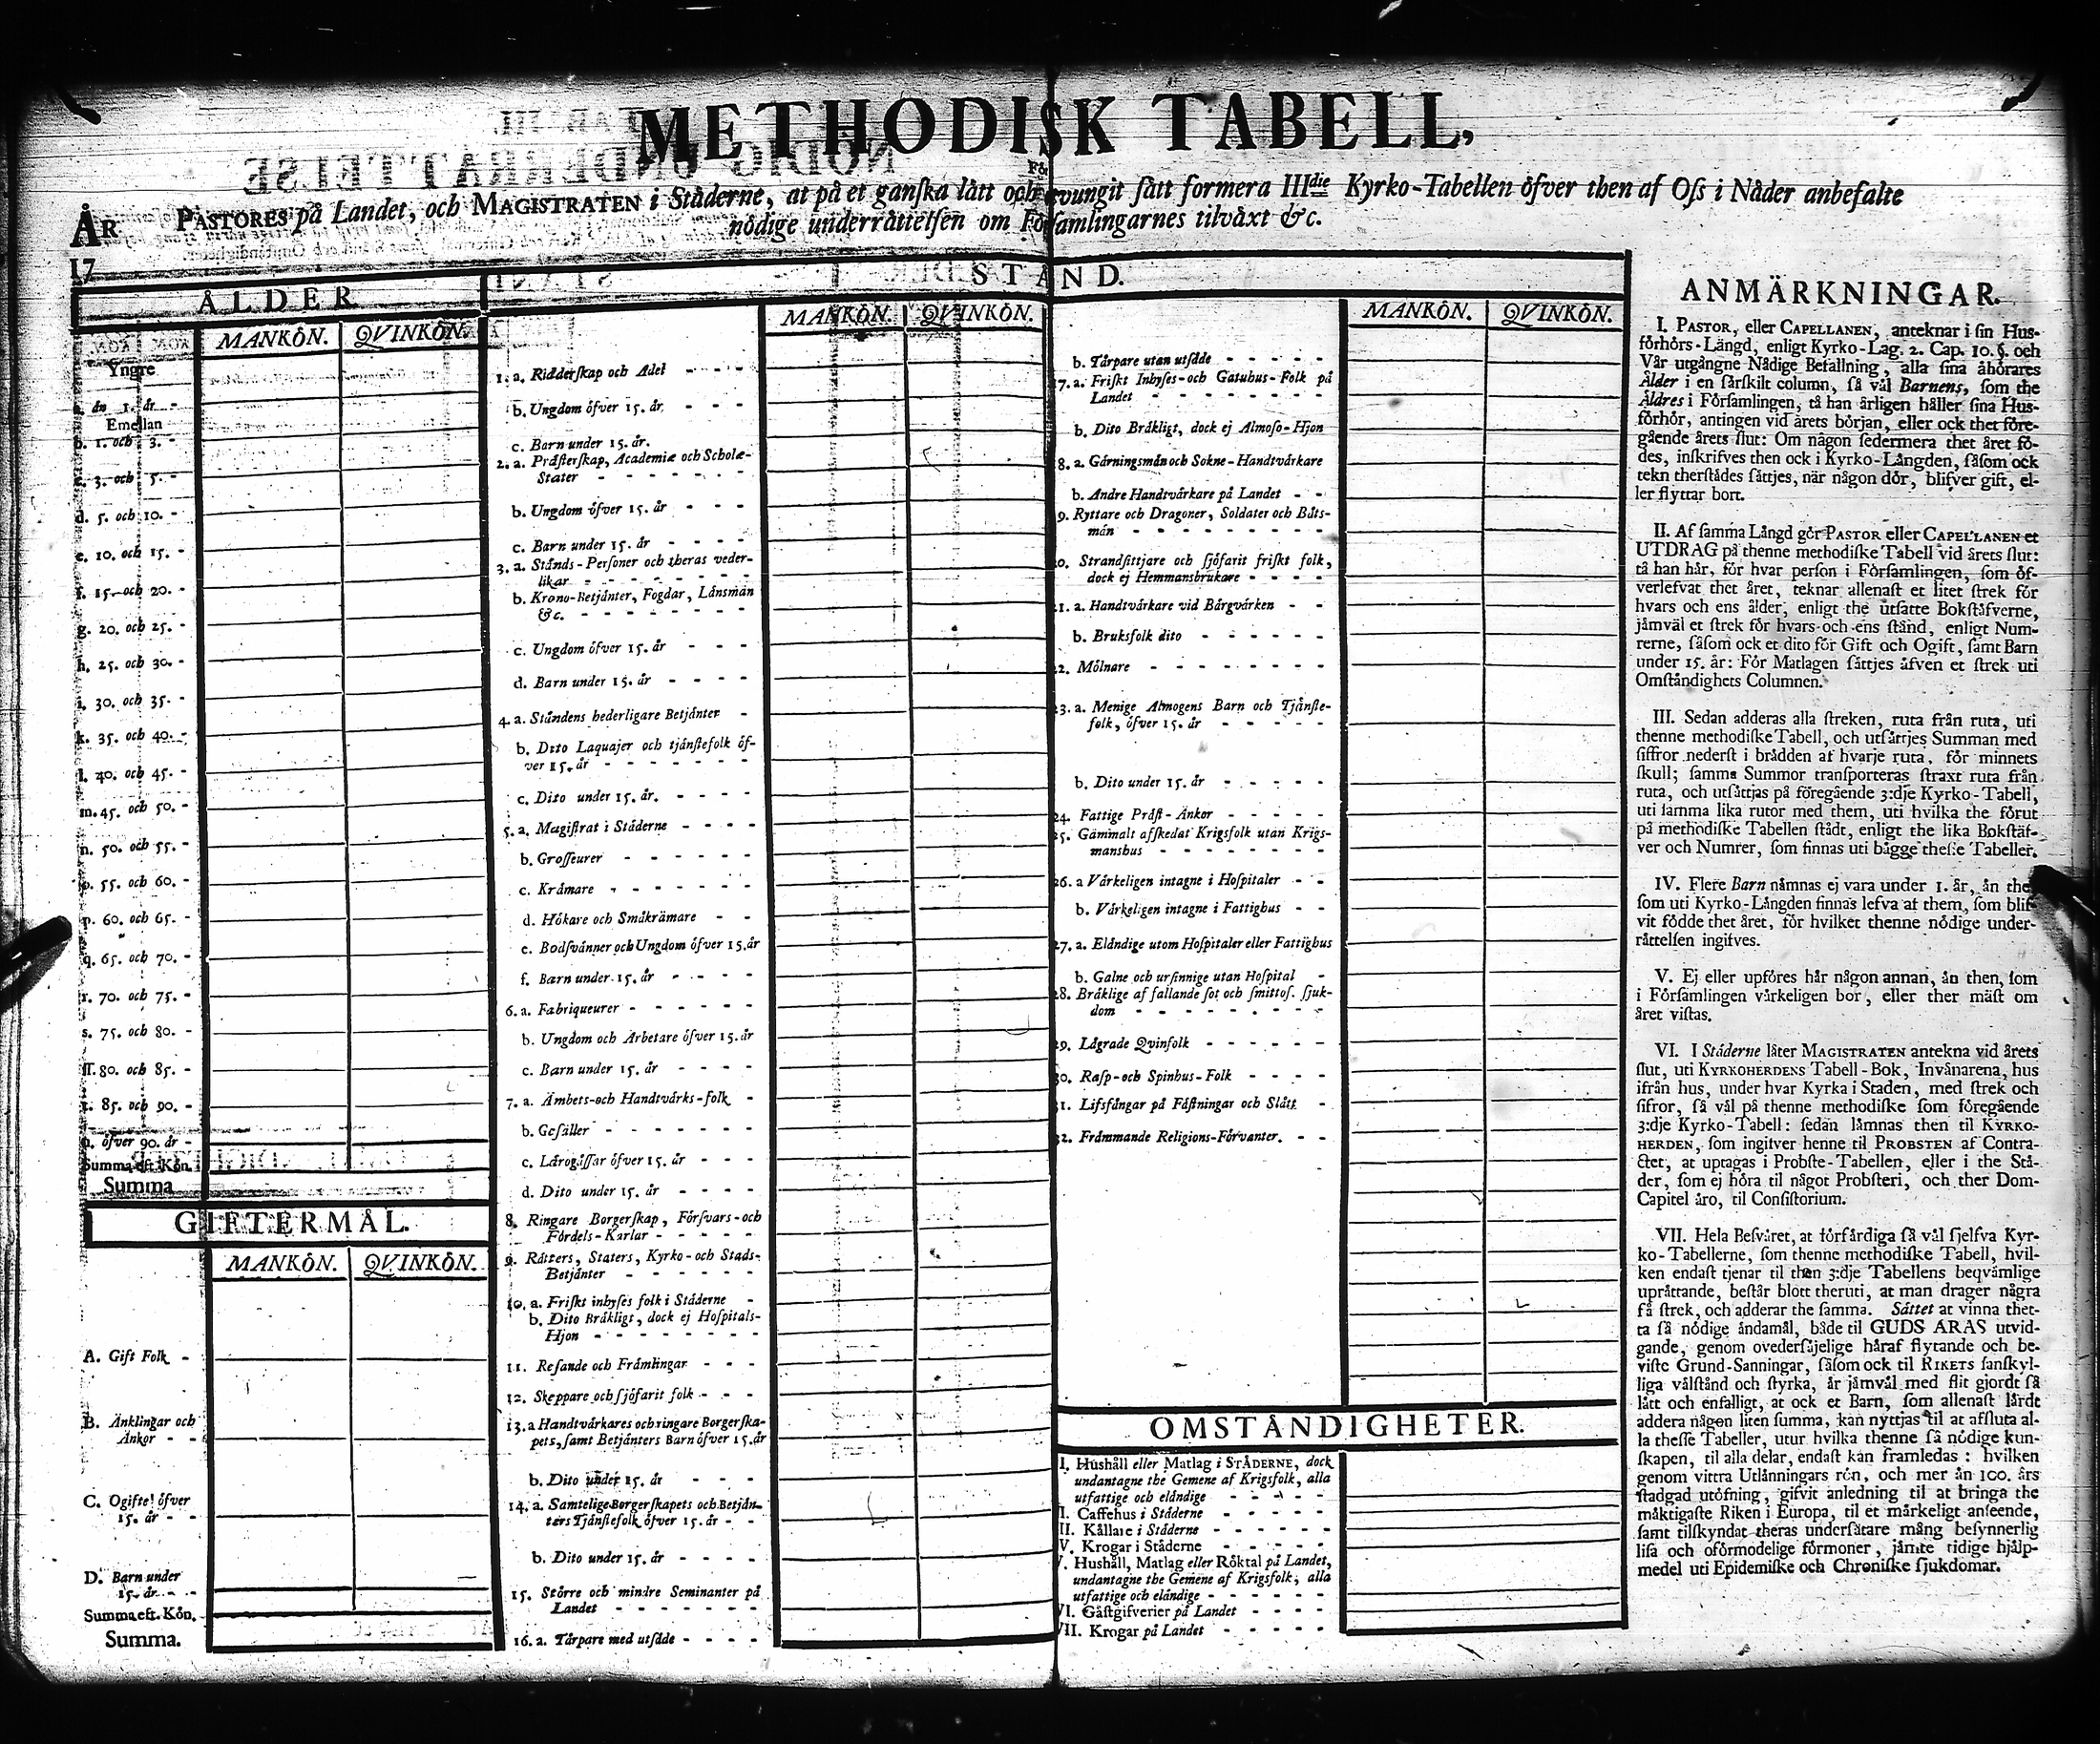 METHODISK TABELL,
För
PASTORES på Landet, och MAGISTRATEN i Städerne, at på et ganska lått och tvungit sätt formera IIIdie Kyrko-Tabellen öfver then af Oss i Nåder anbefalte
nödige underråttelsen om Församlingarnes tilväxt &c.
ÅR
17
ÅLDER
MANKÖN. QVINKÖN.
Yngre
a. än 1. år -
Emellan
b. 1. och 3. -
c. 3. och 5. -
d. 5. och 10. -
e. 10. och 15. -
f. 15. och 20. -
g. 20. och 25. -
h. 25. och 30. -
i. 30. och 35. -
k. 35. och 40. -
l. 40. och 45. -
m. 45. och 50. -
n. 50. och 55. -
o. 55. och 60. -
p. 60. och 65. -
q. 65. och 70. -
r. 70. och 75. -
s. 75. och 80. -
ſſ. 80. och 85. -
t. 85. och 90. -
u. öfver 90. år -
Summa eft. Kön.
Summa
GIFTERMÅL.
MANKÖN. QVINKÖN.
A. Gift Folk -
B. Änklingar och
Änkor - -
C. Ogifte öfver
15. år - -
D. Barn under
15. år - -
Summa eft. Kön.
Summa.
STÅND.
MANKÖN. QVINKÖN.
1. a. Ridderskap och Adel - - - -
b. Ungdom öfver 15. år - - -
c. Barn under 15. år.
2. a. Pråsterskap, Academiæ och Scholæ-
Stater - - - - - -
b. Ungdom öfver 15. år - - -
c. Barn under 15. år - - - -
3. a. Stånds-Personer och theras veder-
likar - - - - - - -
b. Krono-Betjånter, Fogdar, Lånsmån
&c. - - - - - - -
c. Ungdom öfver 15. år - - -
d. Barn under 15. år - - - -
4. a. Ståndens hederligare Betjånter -
b. Dito Laquajer och tjånstefolk öf-
ver 15. år - - - - - - -
c. Dito under 15. år. - - - -
5. a. Magistrat i Städerne - - - -
b. Grosseurer - - - - - -
c. Kråmare - - - - - - -
d. Hökare och Småkrämare - -
e. Bodsvånner och Ungdom öfver 15. år
f. Barn under 15. år - - - -
6. a. Fabriqueurer - - - - -
b. Ungdom och Arbetare öfver 15. år
c. Barn under 15. år - - - -
7. a. Ämbets-och Handtvårks-folk -
b. Gesäller - - - - - - -
c. Lårogåssar öfver 15. år - - -
d. Dito under 15. år - - - -
8. Ringare Borgerskap, Försvars-och
Fördels-Karlar - - - - -
9. Råtters, Staters, Kyrko-och Stads-
Betjånter - - - - - -
10. a. Friskt inhyses folk i Städerne -
b. Dito Bråkligt, dock ej Hospitals-
Hjon - - - - - - - -
11. Resande och Fråmlingar - - -
12. Skeppare och sjöfarit folk - - -
13. a Handtvårkares och ringare Borgerska-
pets, samt Betjånters Barn öfver 15. år
b. Dito under 15. år - - - -
14. a. Samtelige Borgerskapets och Betjån-
ters Tjånstefolk öfver 15. år - -
b. Dito under 15. år - - - -
15. Större och mindre Seminanter på
Landet - - - - - - -
16. a. Tårpare med utsåde - - - -
MANKÖN. QVINKÖN.
b. Tårpare utan utsåde - - - - -
7. a. Friskt Inhyses-och Gatuhus-Folk på
Landet - - - - - - - -
b. Dito Bråkligt, dock ej Almoso-Hjon
8. a. Gårningsmån och Sokne-Handtvårkare
b. Andre Handtvårkare på Landet - -
9. Ryttare och Dragoner, Soldater och Båts-
mån - - - - - - - -
0. Strandsittjare och sjöfarit friskt folk,
dock ej Hemmansbrukare - - - -
1. a. Handtvårkare vid Bårgvårken - -
b. Bruksfolk dito - - - - - -
2. Mölnare - - - - - - - - -
3. a. Menige Almogens Barn och Tjånste-
folk, öfver 15. år - - - - - -
b. Dito under 15. år - - - - -
24. Fattige Pråst-Änkor - - - - -
25. Gammalt afskedat Krigsfolk utan Krigs-
manshus - - - - - - - -
26. a Vårkeligen intagne i Hospitaler - -
b. Vårkeligen intagne i Fattighus - -
27. a. Elåndige utom Hospitaler eller Fattighus
b. Galne och ursinnige utan Hospital -
28. Bråklige af fallande sot och smittos. sjuk-
dom - - - - - - - -
29. Lågrade Qvinfolk - - - - - -
30. Rasp-och Spinhus-Folk - - - -
31. Lifsfångar på Fåstningar och Slått -
32. Fråmmande Religions-Förvanter. - -
OMSTÅNDIGHETER.
I. Hushåll eller Matlag i STÅDERNE, dock
undantagne the Gemene af Krigsfolk, alla
utfattige och elåndige - - - - -
I. Caffehus i Städerne - - - - -
II. Kållare i Städerne - - - - - -
V. Krogar i Städerne - - - - - -
V. Hushåll, Matlag eller Röktal på Landet,
undantagne the Gemene af Krigsfolk, alla
utfattige och elåndige - - - - - -
VI. Gåstgifverier på Landet - - - -
VII. Krogar på Landet - - - - -
ANMÄRKNINGAR.
I. PASTOR, eller CAPELLANEN, anteknar i sin Hus-
förhörs-Längd, enligt Kyrko-Lag. 2. Cap. 10. §. och
Vår utgångne Nådige Befallning, alla sina åhörares
Ålder i en sårskilt column, så vål Barnens, som the
Äldres i Församlingen, tå han årligen håller sina Hus-
förhör, antingen vid årets början, eller ock thet före-
gående årets slut: Om någon sedermera thet året fö-
des, inskrifves then ock i Kyrko-Långden, såsom ock
tekn therstådes såttjes, när någon dör, blifver gift, el-
ler flyttar bort.
II. Af samma Långd gör PASTOR eller CAPELLANEN et
UTDRAG på thenne methodiske Tabell vid årets slut:
tå han hår, för hvar person i Församlingen, som öf-
verlefvat thet året, teknar allenast et litet strek för
hvars och ens ålder, enligt the utsatte Bokståfverne,
jåmväl et strek för hvars-och-ens stånd, enligt Num-
rerne, såsom ock et dito för Gift och Ogift, samt Barn
under 15. år: För Matlagen såttjes åfven et strek uti
Omståndighets Columnen.
III. Sedan adderas alla streken, ruta från ruta, uti
thenne methodiske Tabell, och utsåttjes Summan med
siffror nederst i brådden af hvarje ruta, för minnets
skull; samma Summor transporteras straxt ruta från
ruta, och utsåttjas på föregående 3:dje Kyrko-Tabell,
uti samma lika rutor med them, uti hvilka the förut
på methodiske Tabellen stådt, enligt the lika Bokståf-
ver och Numrer, som finnas uti bågge thesse Tabeller.
IV. Flere Barn nåmnas ej vara under 1. år, ån the
som uti Kyrko-Långden finnas lefva af them, som blif-
vit födde thet året, för hvilket thenne nödige under-
råttelsen ingifves.
V. Ej eller upföres hår någon annan, ån then, som
i Församlingen vårkeligen bor, eller ther mäst om
året vistas.
VI. I Städerne låter MAGISTRATEN antekna vid årets
slut, uti KYRKOHERDENS Tabell-Bok, Invånarena, hus
ifrån hus, under hvar Kyrka i Staden, med strek och
sifror, så vål på thenne methodiske som föregående
3:dje Kyrko-Tabell: sedan lämnas then til KYRKO-
HERDEN, som ingifver henne til PROBSTEN af Contra-
ctet, at uptagas i Probste-Tabellen, eller i the Stå-
der, som ej höra til något Probsteri, och ther Dom-
Capitel åro, til Consistorium.
VII. Hela Besvåret, at förfårdiga så vål sjelfva Kyr-
ko-Tabellerne, som thenne methodiske Tabell, hvil-
ken endast tjenar til then 3:dje Tabellens beqvämlige
upråttande, beståɼ blott theruti, at man drager några
få strek, och adderar the samma. Såttet at vinna thet-
ta så nödige åndamål, både til GUDS ÄRAS utvid-
gande, genom ovedersåjelige håraf flytande och be-
viste Grund-Sanningar, såsom ock til RIKETS sanskyl-
liga vålstånd och styrka, år jåmvål med flit gjordt så
lått och enfalligt, at ock et Barn, som allenast lårdt
addera någon liten summa, kan nyttjas til at afsluta al-
la thesse Tabeller, utur hvilka thenne så nödige kun-
skapen, til alla delar, endast kan framledas: hvilken
genom vittra Utlånningars rön, och mer ån 100. års
stadgad utöfning, gifvit anledning til at bringa the
måktigaste Riken i Europa, til et mårkeligt anseende,
samt tilskyndat theras undersåtare mång besynnerlig
lisa och oförmodelige förmoner, jåmte tidige hjålp-
medel uti Epidemiske och Chroniske sjukdomar.